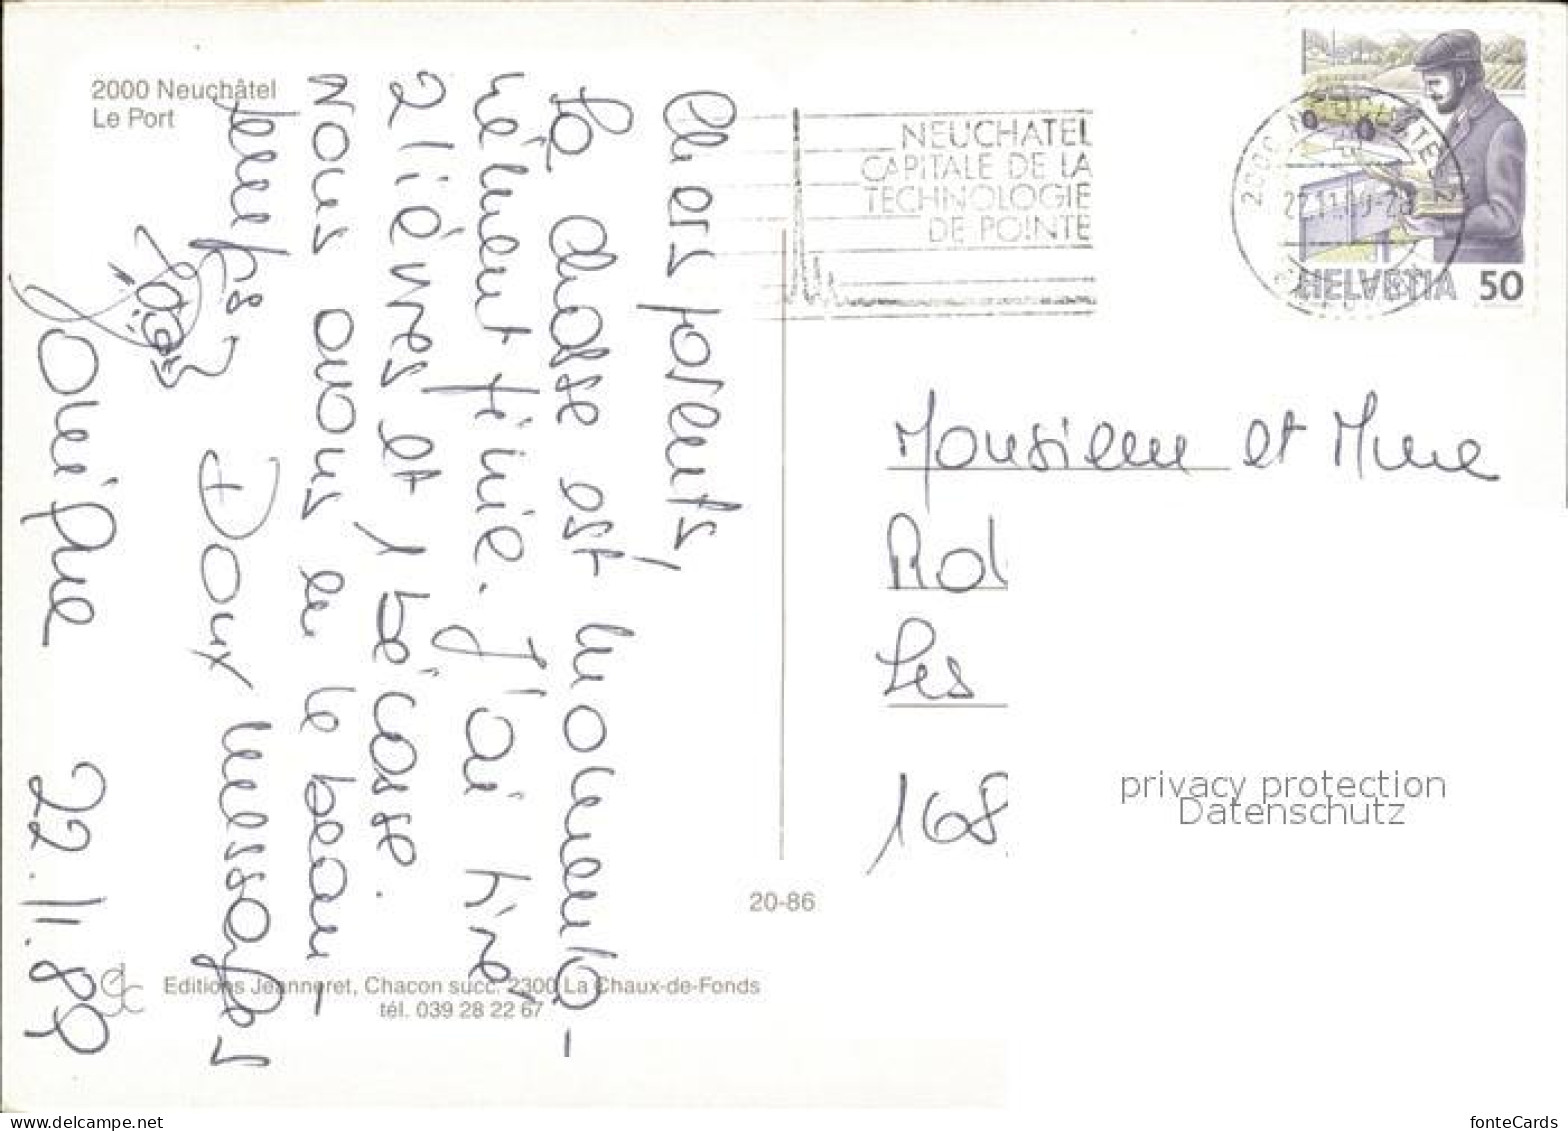 2000 Neuchâtel
Le Port
NEUCHATEL
CAPITALE DE LA
TECHNOLOGIE
DE POINTE
HELVETIA 50
Chers parents,
La chasse est momenta-
nément finie. J'ai tiré
2 lièvres et 1 bécasse.
Nous avons eu le beau
temps
Doux messages
22.11.89
Monsieur et Mme
Rod
Les
168
privacy protection
Datenschutz
20-86
Editions Jeanneret, Chacon succ. 2300 La Chaux-de-Fonds
tél. 039 28 22 67
https://www.delcampe.net
fonteCards